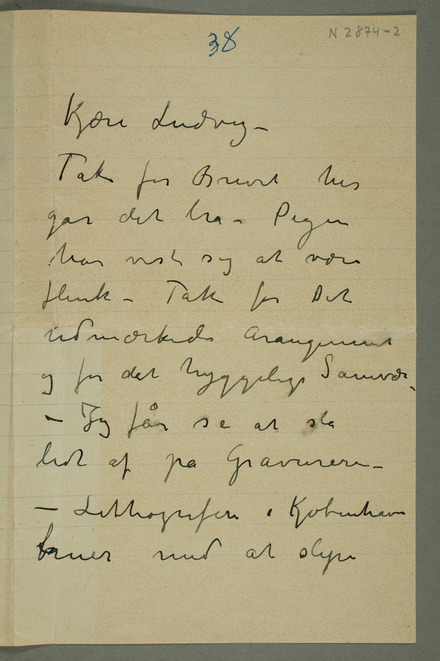 38
N 2874-2
Kjære Ludvig –
Tak for Brevet her
går det bra – Pigen
har vist sig at være
flink – Tak for Det
udmærkede Arangement
og for det hyggelige Samvær
– Jeg får se at slå
lidt af på Gravuren –
– Lithografen i Kjøbenhavn
truer med at slipe